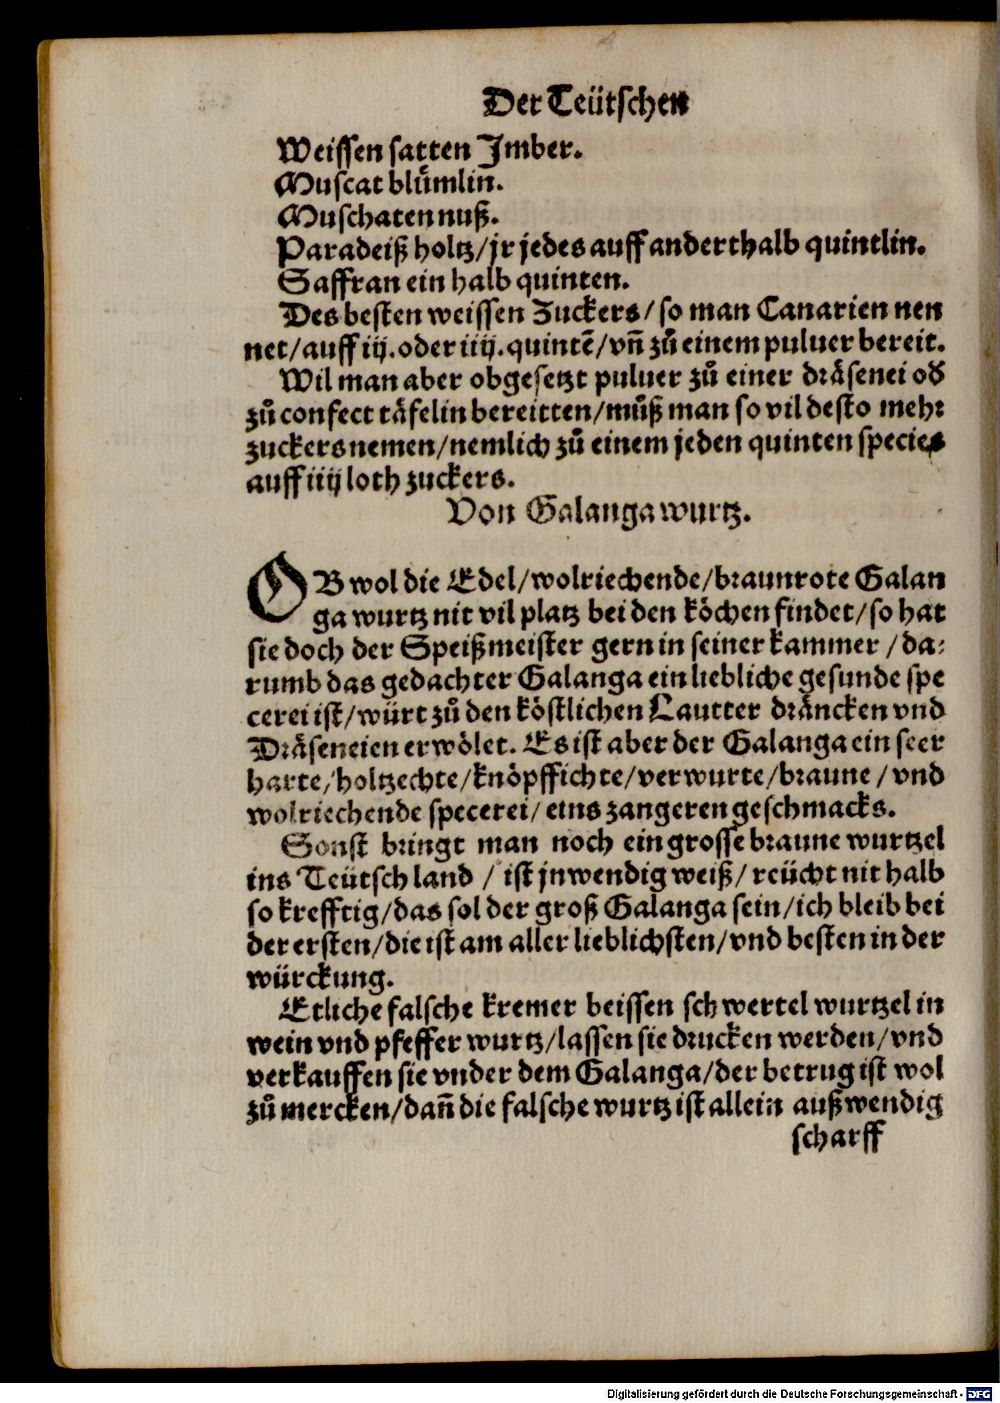 Der Teütschen
Weissen satten Jmber.
Muscat blůmlin.
Muschaten nuß.
Paradeiß holtz/jr jedes auff anderthalb quintlin.
Saffran ein halb quinten.
Des besten weissen Zuckers/so man Canarien nen
net/auff iij.oder iiij.quintē/vn̄ zů einem puluer bereit.
Wil man aber obgesetzt puluer zů einer dräsenei od
zů confect täfelin bereitten/můß man so vil desto mehr
zuckers nemen/nemlich zů einem jeden quinten species
auff iiij loth zuckers.
Von Galanga wurtz.
OB wol die Edel/wolriechende/braunrote Galan
ga wurtz nit vil platz bei den köchen findet/so hat
sie doch der Speißmeister gern in seiner kammer /da⸗
rumb das gedachter Galanga ein liebliche gesunde spe
cerei ist/würt zů den köstlichen Lautter dräncken vnd
Dräseneien erwölet. Es ist aber der Galanga ein seer
harte/holtzechte/knöpffichte/verwurte/braune /vnd
wolriechende specerei/ eins zangeren geschmacks.
Sonst bringt man noch ein grosse braune wurtzel
ins Teütsch land / ist jnwendig weiß/ reücht nit halb
so krefftig/das sol der groß Galanga sein/ich bleib bei
der ersten/die ist am aller lieblichsten/vnd besten in der
würckung.
Etliche falsche kremer beissen schwertel wurtzel in
wein vnd pfeffer wurtz/lassen sie drucken werden/vnd
verkauffen sie vnder dem Galanga/der betrug ist wol
zů mercken/dan̄ die falsche wurtz ist allein außwendig
scharff
Digitalisierung gefördert durch die Deutsche Forschungsgemeinschaft - DFG